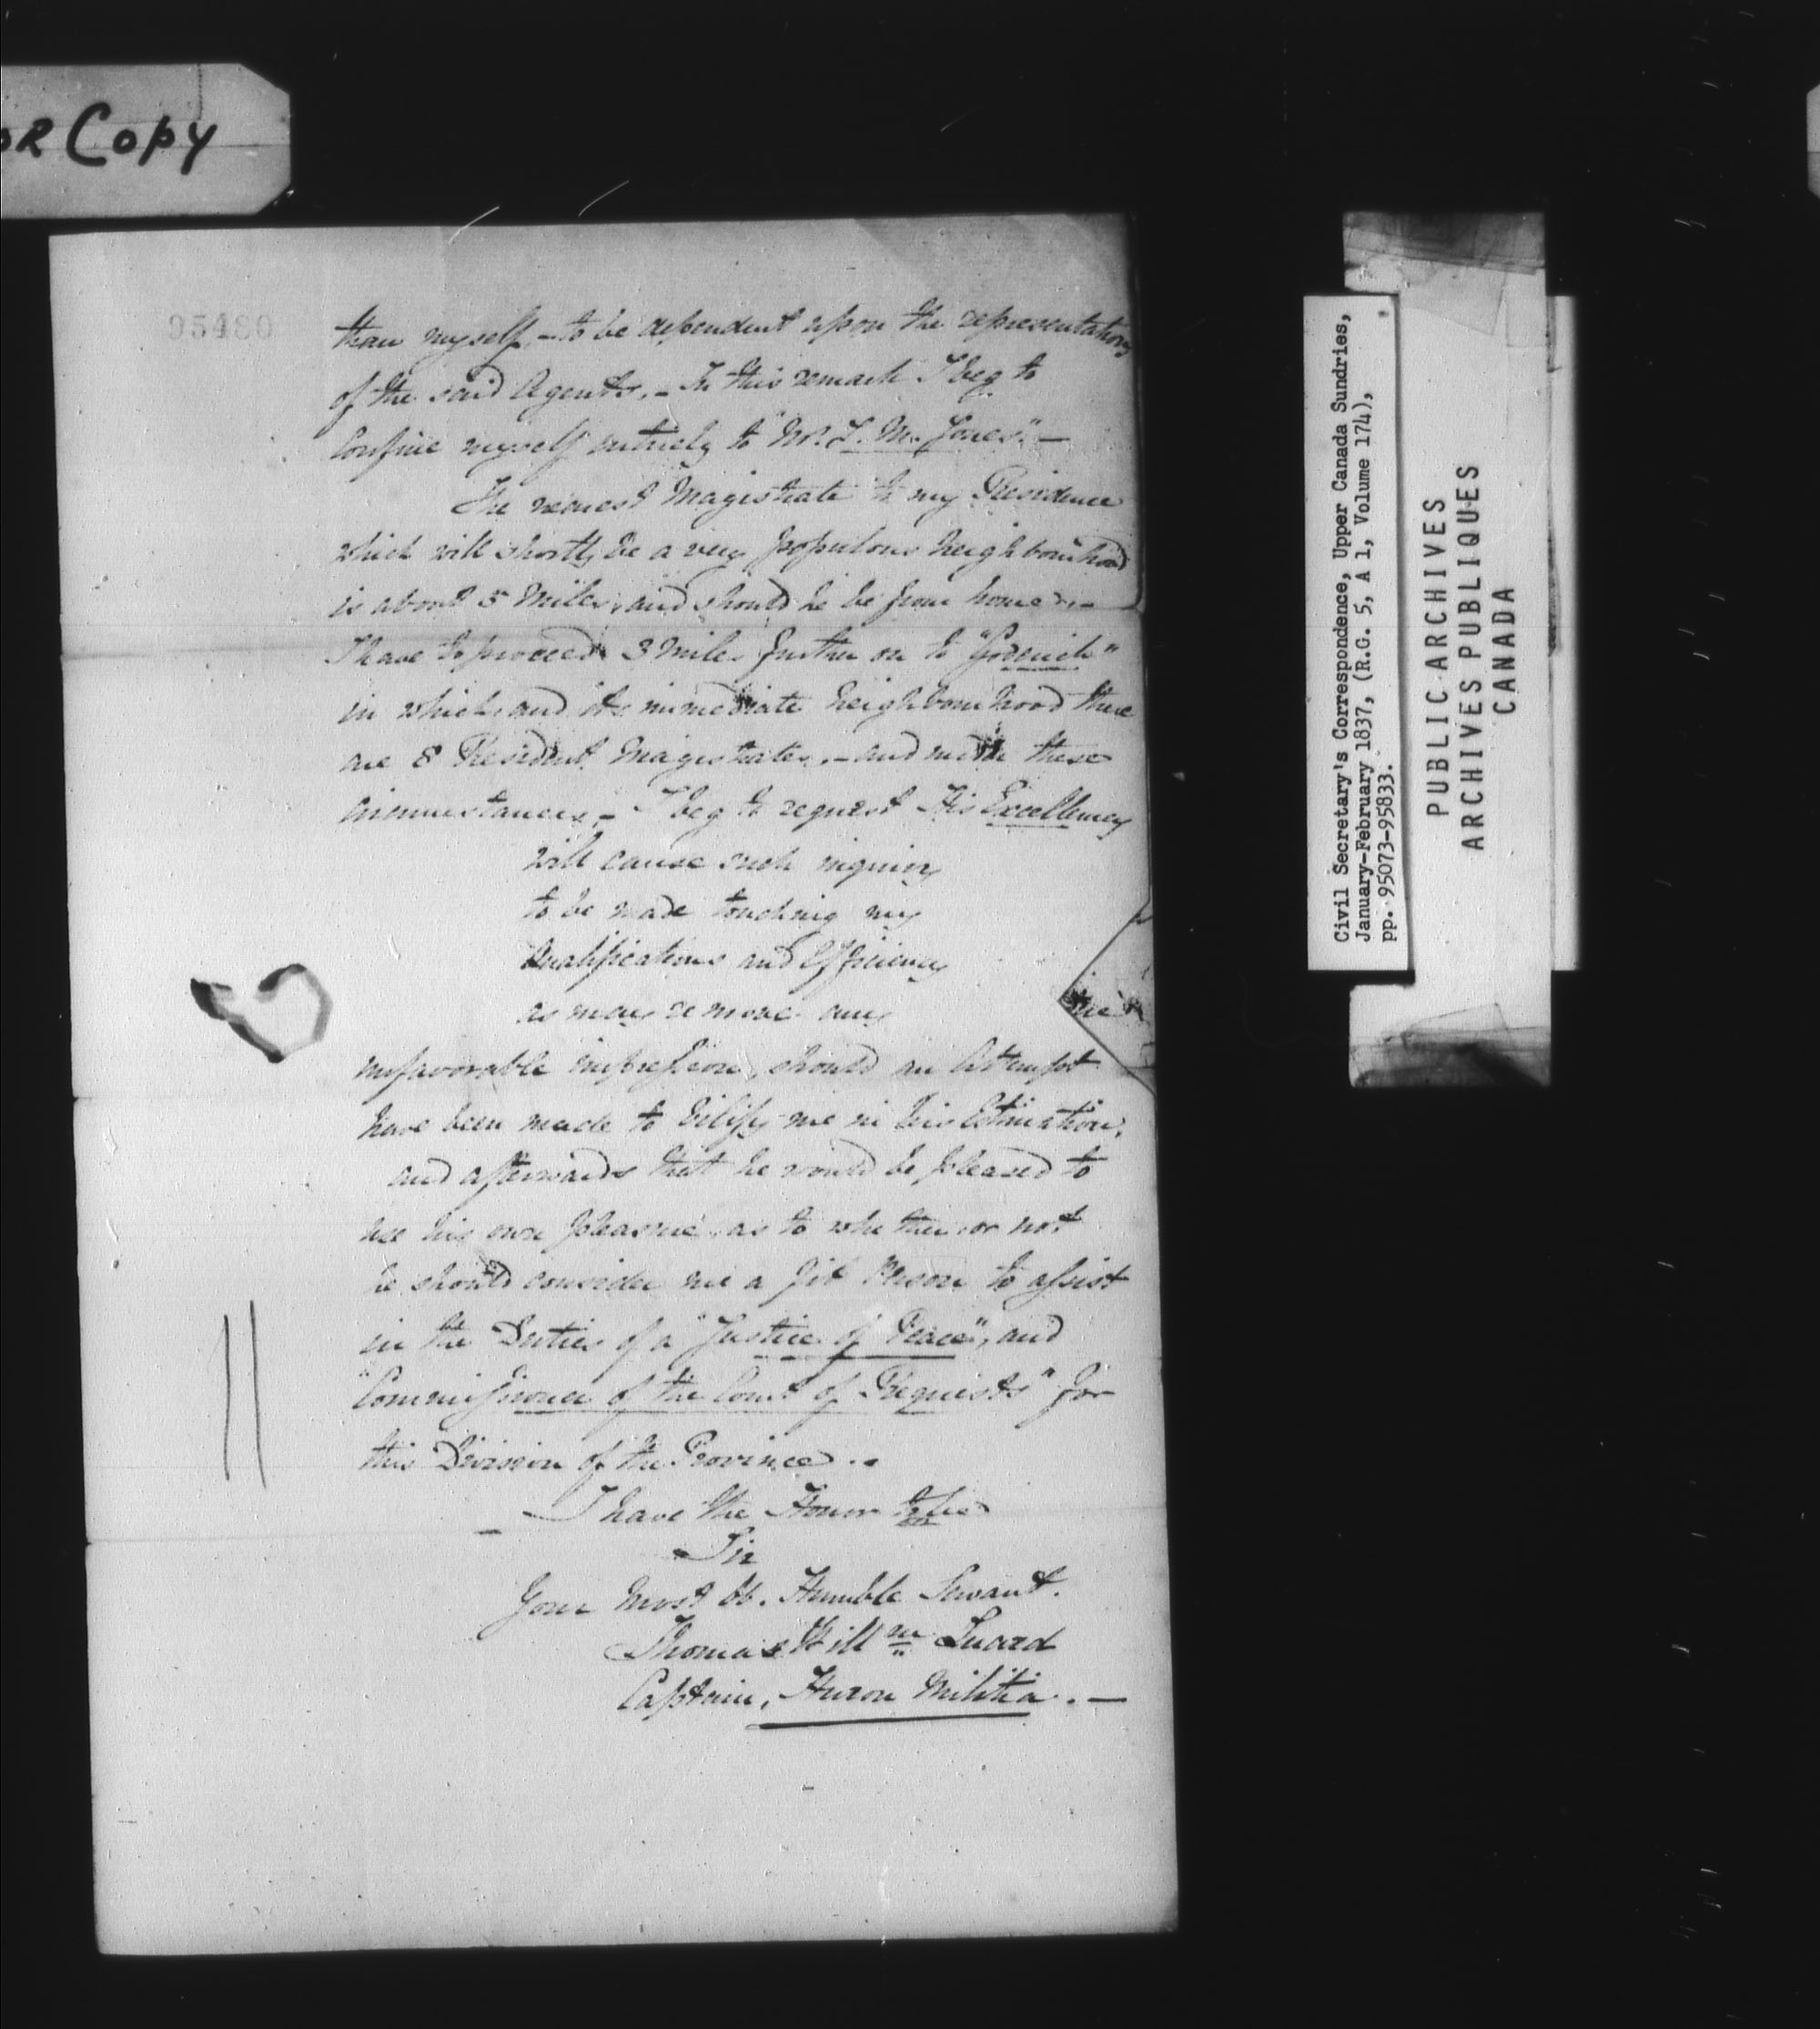 OR Copy
95480
than myself, - to be dependent upon the representations
of the said Agents. - In this remark I beg to
Confine myself entirely to "Mr. T. M. Jones." -
The nearest Magistrate to my Residence
which will shortly be a very populous neighbourhood
is about 5 Miles, and should he be from home, -
I have to proceed 3 miles further on to "Goderich"
in which, and its immediate neighbourhood there
are 8 Resident Magistrates, - and under these
circumstances, - I beg to request His Excellency
will cause such inquiry
to be made touching my
Qualifications and Efficiency
as may remove any
unfavorable impression, should an Attempt
have been made to Vilify me in his Estimation,
and afterwards that he would be pleased to
use his own pleasure as to whether or not
he should consider me a fit Person to assist
in the Duties of a "Justice of Peace", and
"Commissioner of the Court of Requests" for
this Division of the Province. -
I have the Honor to be
Sir
Your most Ob. Humble Servant.
Thomas Will^m Luard
Captain, Huron Militia. -
Civil Secretary's Correspondence, Upper Canada Sundries,
January-February 1837, (R.G. 5, A 1, Volume 174),
pp. 95073-95833.
PUBLIC ARCHIVES
ARCHIVES PUBLIQUES
CANADA